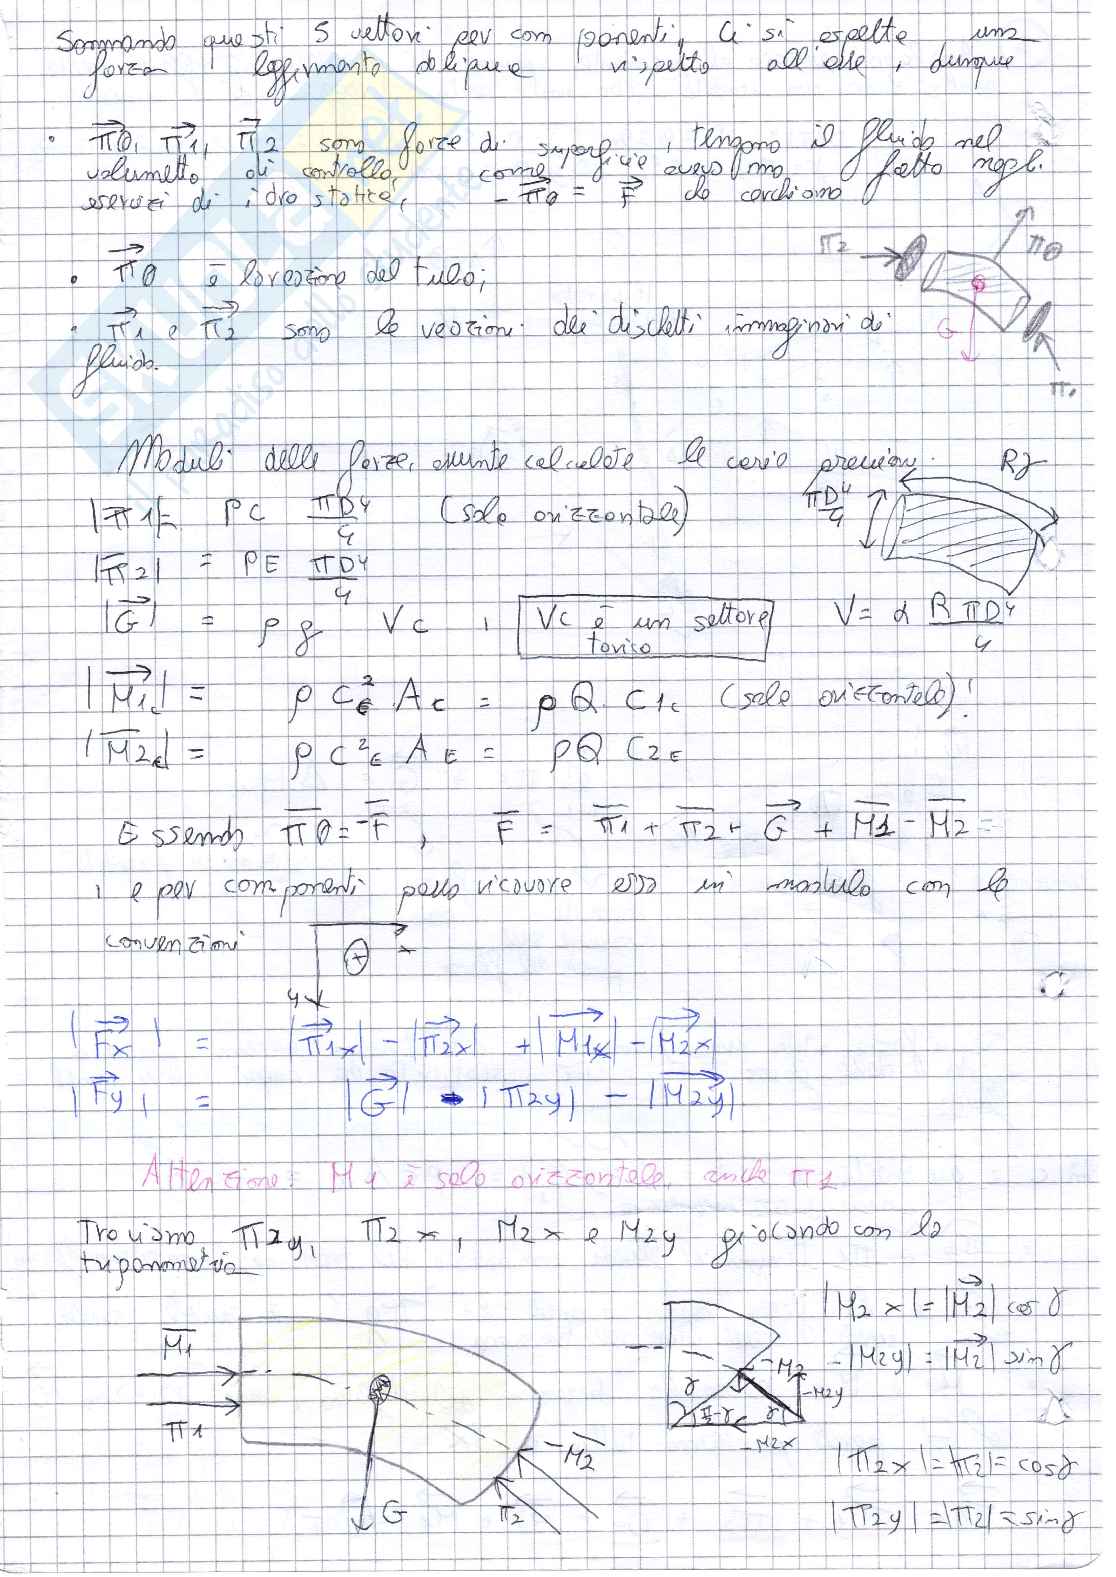 Sommando questi 5 vettori per componenti, ci si aspetta una
forza leggermente obliqua rispetto all'asse, dunque
• π0, π1, π2 sono forze di superficie, tengono il fluido nel
volumetto di controllo, come avevamo fatto negli
esercizi di idrostatica, -π0 = F che cerchiamo
π2
π0
G
π1
• π0 è la reazione del tubo;
• π1 e π2 sono le reazioni dei dischetti immaginari di
fluido.
Moduli delle forze, avendo calcolate le varie pressioni.
Rγ
πD4/4
|π1| = PC πD4/4 (solo orizzontale)
|π2| = PE πD4/4
|G| = ρ g Vc , Vc è un settore torico V = α R πD4/4
|M1c| = ρ C²c Ac = ρQ C1c (solo orizzontale)!
|M2E| = ρ C²E AE = ρQ C2E
Essendo π0 = -F , F = π1 + π2 + G + M1 - M2 =
, e per componenti posso ricavare esso in modulo con le
convenzioni
+
x
y
|Fx| = |π1x| - |π2x| + |M1x| - |M2x|
|Fy| = |G| - |π2y| - |M2y|
Attenzione: M1 è solo orizzontale, anche π1
Troviamo π2y, π2x, M2x e M2y giocando con la
trigonometria
M1
π1
G
-M2
π2
-M2
-M2y
-M2x
γ
π/2-γ
γ
|M2x| = |M2| cosγ
-|M2y| = |M2| sinγ
|π2x| = |π2| = cosγ
|π2y| = |π2| = sinγ